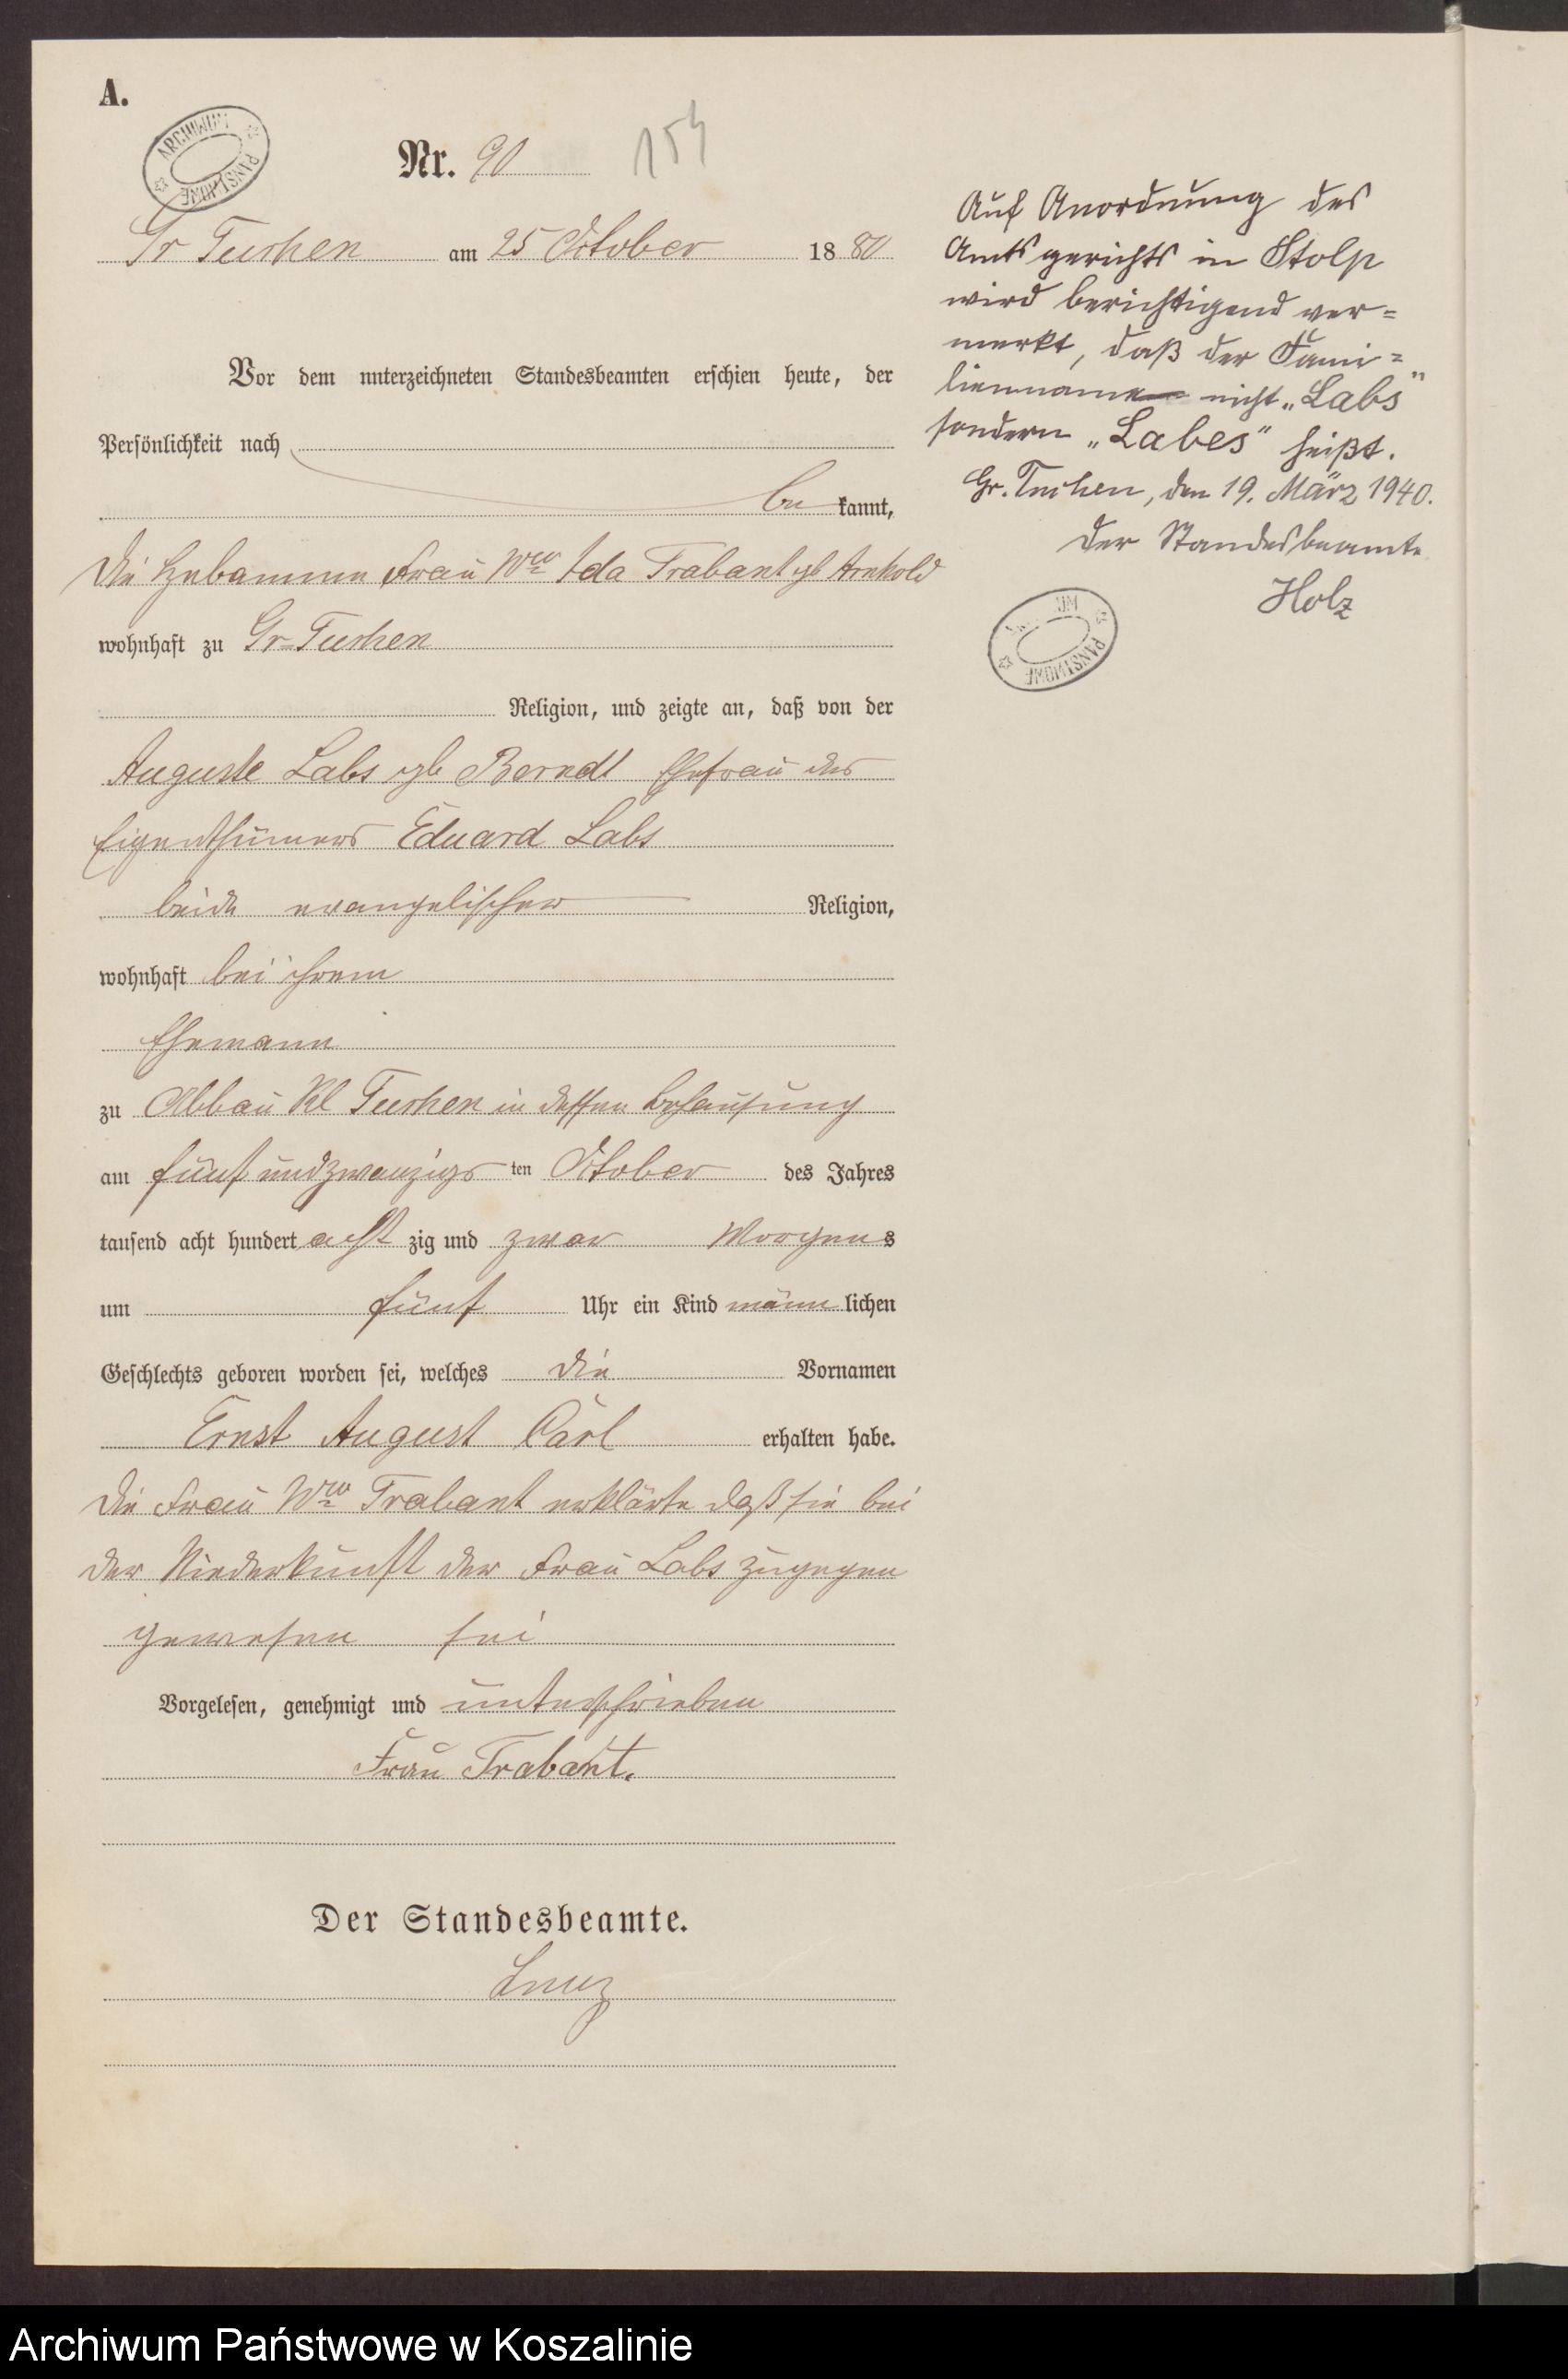 A.
ARCHIWUM PAŃSTWOWE
Nr. 90
154
Gr Tuchen am 25 October 1880
Vor dem unterzeichneten Standesbeamten erschien heute, der
Persönlichkeit nach
bekannt,
die Hebamme Frau Wwe Ida Trabant gb Arnhold
wohnhaft zu Gr-Tuchen
Religion, und zeigte an, daß von der
Auguste Labs gb Berndt Ehefrau des
Eigenthümers Eduard Labs
beide evangelischer Religion,
wohnhaft bei ihrem
Ehemann
zu Abbau Kl Tuchen in dessen Behausung
am fünfundzwanzigsten October des Jahres
tausend acht hundert achtzig und zwar Morgens
um fünf Uhr ein Kind männlichen
Geschlechts geboren worden sei, welches die Vornamen
Ernst August Carl erhalten habe.
Die Frau Wwe Trabant erklärte daß sie bei
der Niederkunft der Frau Labs zugegen
gewesen sei
Vorgelesen, genehmigt und unterschrieben
Frau Trabant.
Der Standesbeamte.
Auf Anordnung des
Amtsgerichts in Stolp
wird berichtigend ver=
merkt, daß der Fami=
lienname nicht „Labs"
sondern „Labes" heißt.
Gr. Tuchen, den 19. März 1940.
Der Standesbeamte
Holz
PAŃSTWOWE
Archiwum Państwowe w Koszalinie